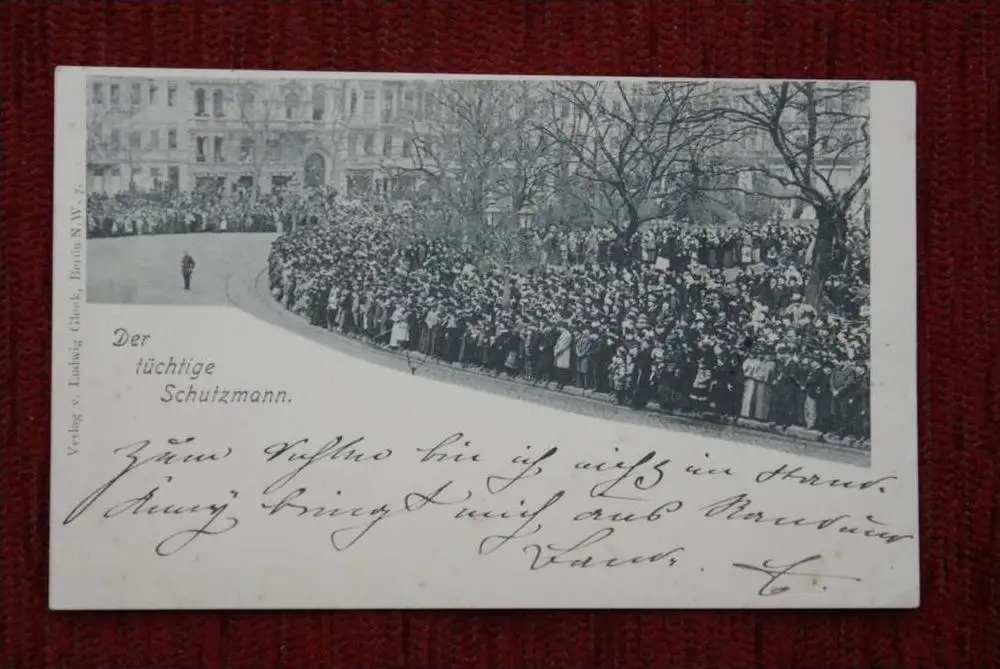 Der
tüchtige
Schutzmann.
Verlag v. Ludwig Gleek, Berlin N.W. 7.
Zum bin ich nicht im
bringt mich aus Rand und
Band.